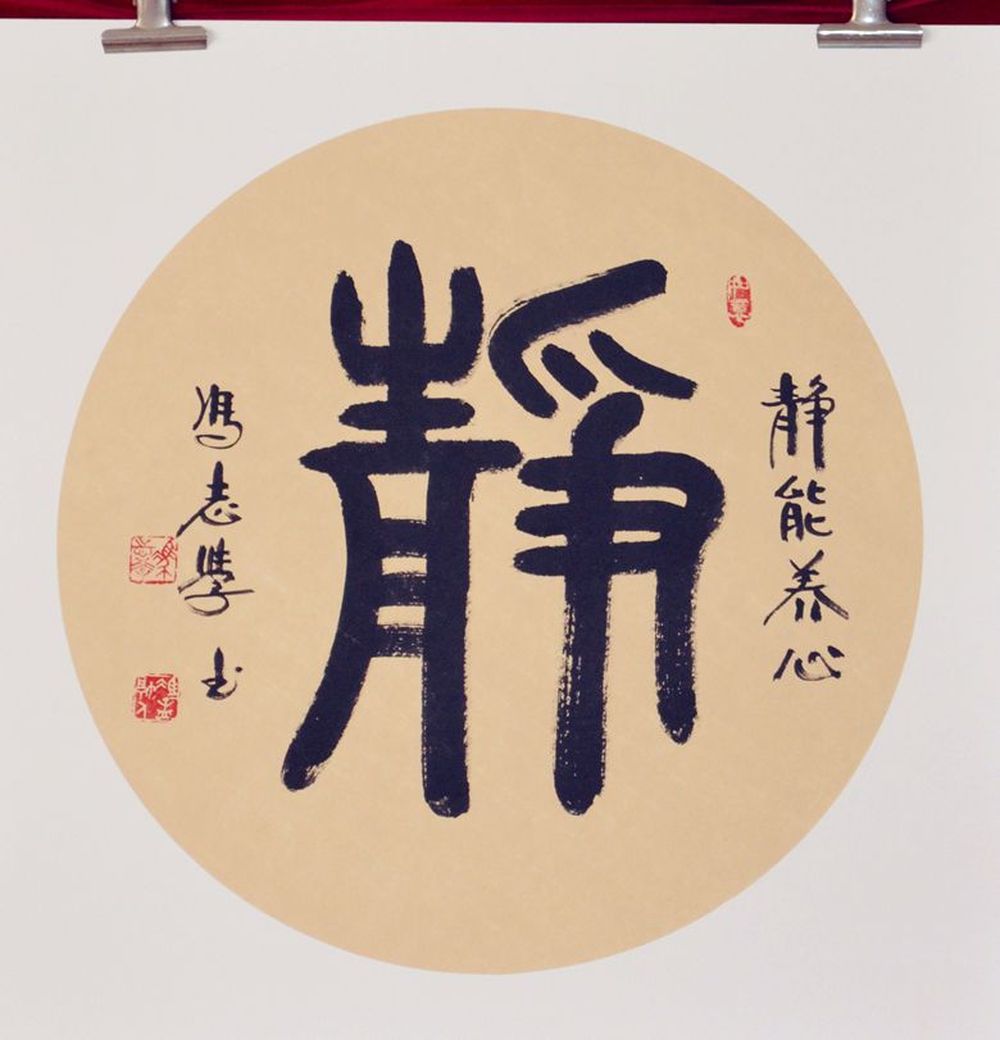 靜
静能养心
冯志学书